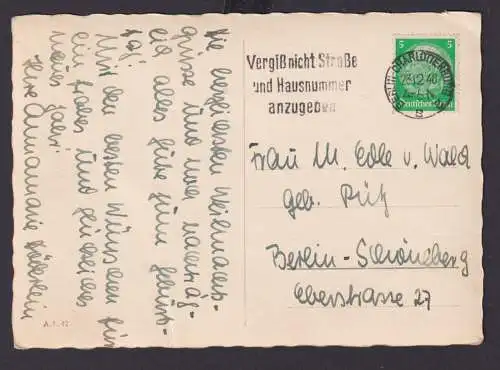 Die herzlichsten Weihnachts-
grüsse und nur nachträg-
lich alles Gute zum Geburts-
tag!
Mit den besten Wünschen für
ein frohes und glückliches
neues Jahr!
Ihre Annamarie
A. 1. 42
Vergiß nicht Straße
und Hausnummer
anzugeben
5 5
Deutsches Reich
BERLIN-CHARLOTTENBURG
23.12.40
Frau M. Edle v. Wald
geb. Pütz
Berlin-Schöneberg
Eberstrasse 27